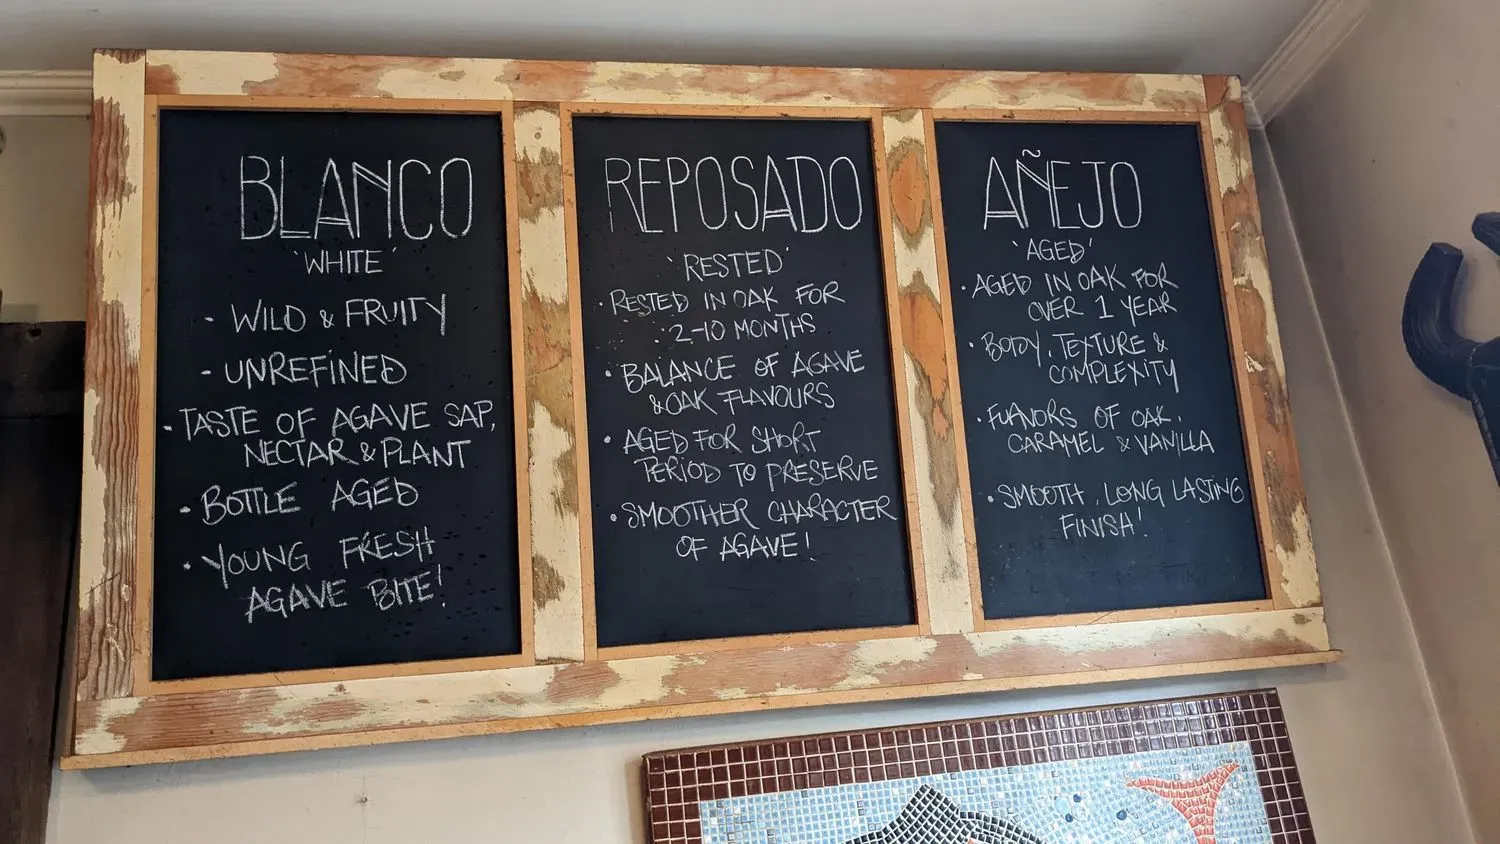 BLANCO
'WHITE'
- WILD & FRUITY
- UNREFINED
• TASTE OF AGAVE SAP,
NECTAR & PLANT
• BOTTLE AGED
• YOUNG FRESH
AGAVE BITE!
REPOSADO
'RESTED'
• RESTED IN OAK FOR
2-10 MONTHS
• BALANCE OF AGAVE
& OAK FLAVOURS
• AGED FOR SHORT
PERIOD TO PRESERVE
• SMOOTHER CHARACTER
OF AGAVE!
AÑEJO
'AGED'
• AGED IN OAK FOR
OVER 1 YEAR
• BODY, TEXTURE &
COMPLEXITY
• FLAVORS OF OAK,
CARAMEL & VANILLA
• SMOOTH, LONG LASTING
FINISH!